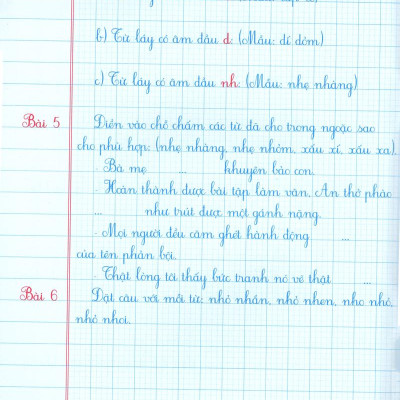 b) Từ láy có âm đầu d: (Mẫu: dí dỏm)
c) Từ láy có âm đầu nh: (Mẫu: nhẹ nhàng)
Bài 5 Điền vào chỗ chấm các từ đã cho trong ngoặc sao
cho phù hợp: (nhẹ nhàng, nhẹ nhõm, xấu xí, xấu xa)
- Bà mẹ ... khuyên bảo con.
- Hoàn thành được bài tập làm văn, An thở phào
... như trút được một gánh nặng.
- Mọi người đều căm ghét hành động ...
của tên phản bội.
- Thật lòng tôi thấy bức tranh nó vẽ thật ...
Bài 6 Đặt câu với mỗi từ: nhỏ nhắn, nhỏ nhen, nho nhỏ,
nhỏ nhoi.